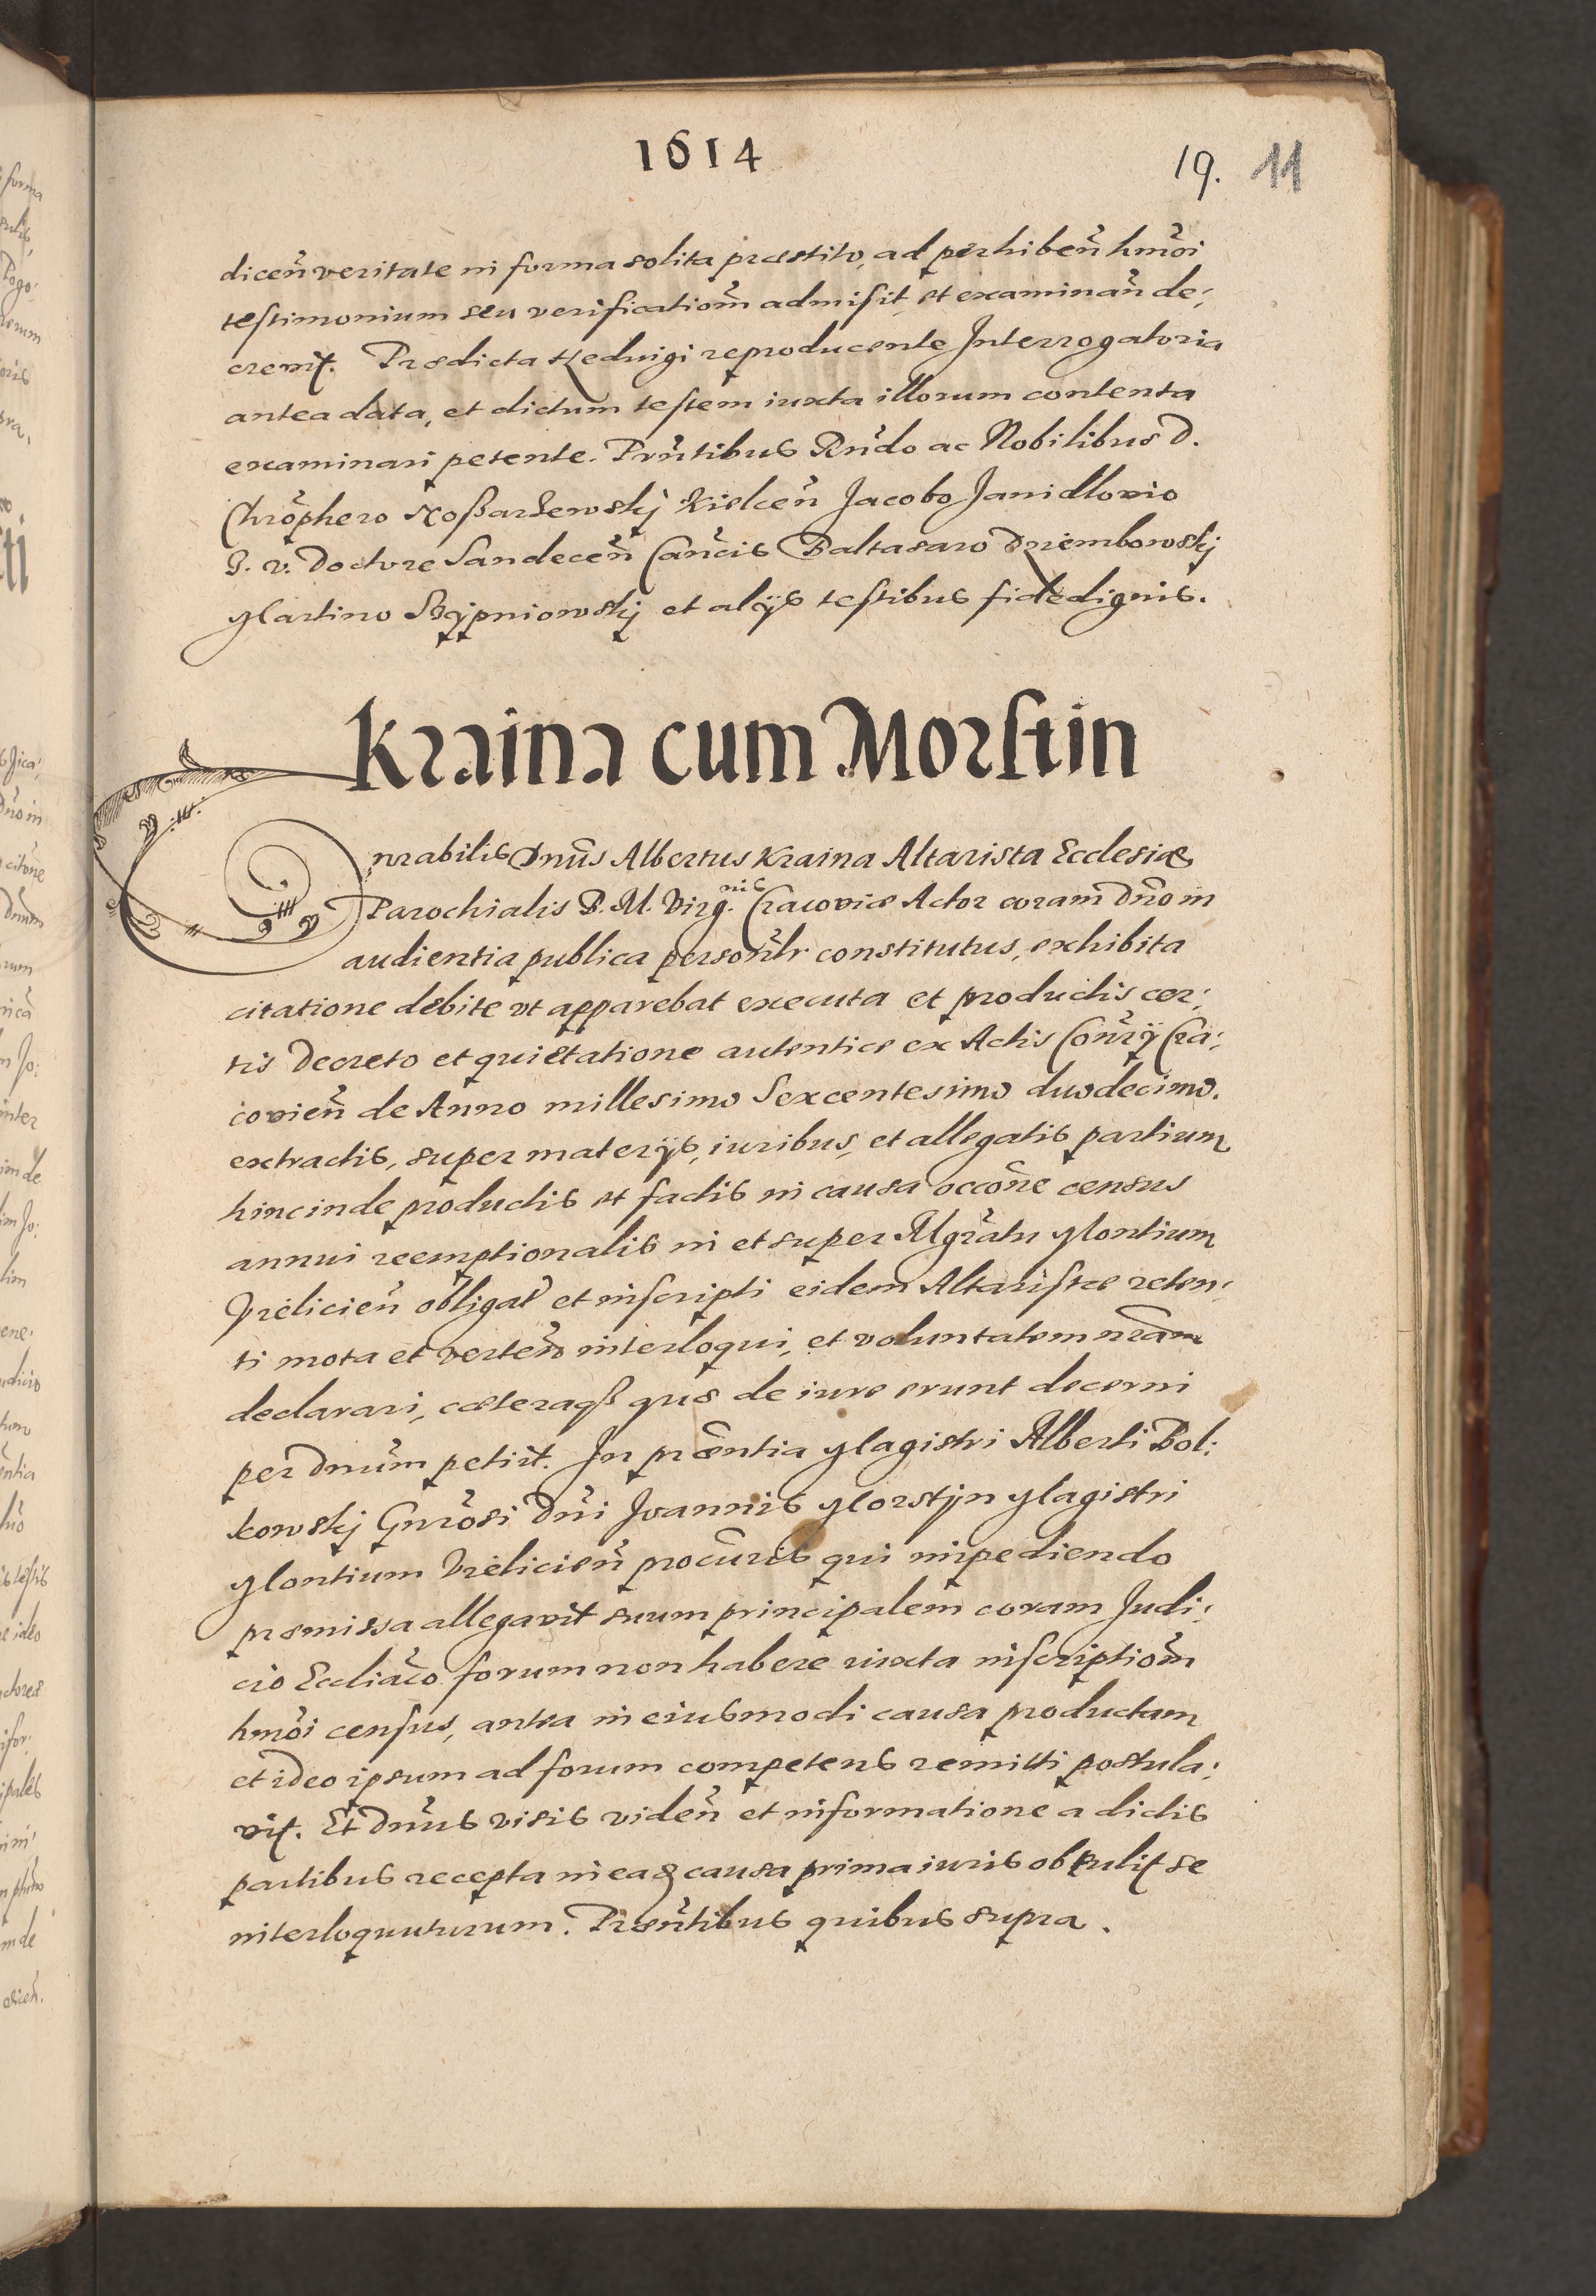 1614
19. 11
diceñ veritate in forma solita præstito, ad perhibeñ hmõi
testimonium seu verificatiom̃ admisit, et examinañ de:
crevit. Prædicta Heduigi reproducente Interrogatoria
antea data, et dictum testem iuxta illorum contenta
examinari petente. Prñtibus Rñdo ac Nobilibus D.
Chrõphero Koßarzewskÿ Kielceñ Jacobo Janidlovio
J. v. Doctore Sandeceñ Cañcis Baltasaro Dziembowskj
Martino Skÿpniowskÿ et alÿs testibus fide dignis.
Kraina cum Morstin
Vnrabilis Dnũs Albertus Kraina Altarista Ecclesiæ
Parochialis B. M. Virg.nis Cracoviæ Actor coram Dño in
audientia publica personãlr constitutus, exhibita
citatione debite vt apparebat executa et productis cer:
tis Decreto et quietatione autentice ex Actis Consr̃ÿ Cra:
covieñ de Anno millesimo Sexcentesimo duodecimo.
extractis, super materÿs, iuribus, et allegatis partium
hincinde productis et factis in causa occõne census
annui reemptionalis in et super Mgrãtu Montium
Vielicieñ obligať et inscripti eidem Altaristæ reten:
ti mota et verteñ interloqui, et voluntatem nr̃am
declarari, cæteraqß quæ de iure erunt decerni
per Dnũm petiit. In præntia Magistri Alberti Bol:
kowskj Gnrõsi Dñi Joannis Morstÿn Magistri
Montium Vielicieñ procũris qui impediendo
præmissa allegavit suum principalem coram Judi:
cio Eccliãco forum non habere iuxta inscriptiom̃
hmõi census, antea in eiusmodi causa productam
et ideo ipsum ad forum competens remitti postula:
vit. Et Dnũs visis videñ et informatione a dictis
partibus recepta in ea causa prima iuris obtulit se
interloquuturum. Præsñtibus quibus supra.